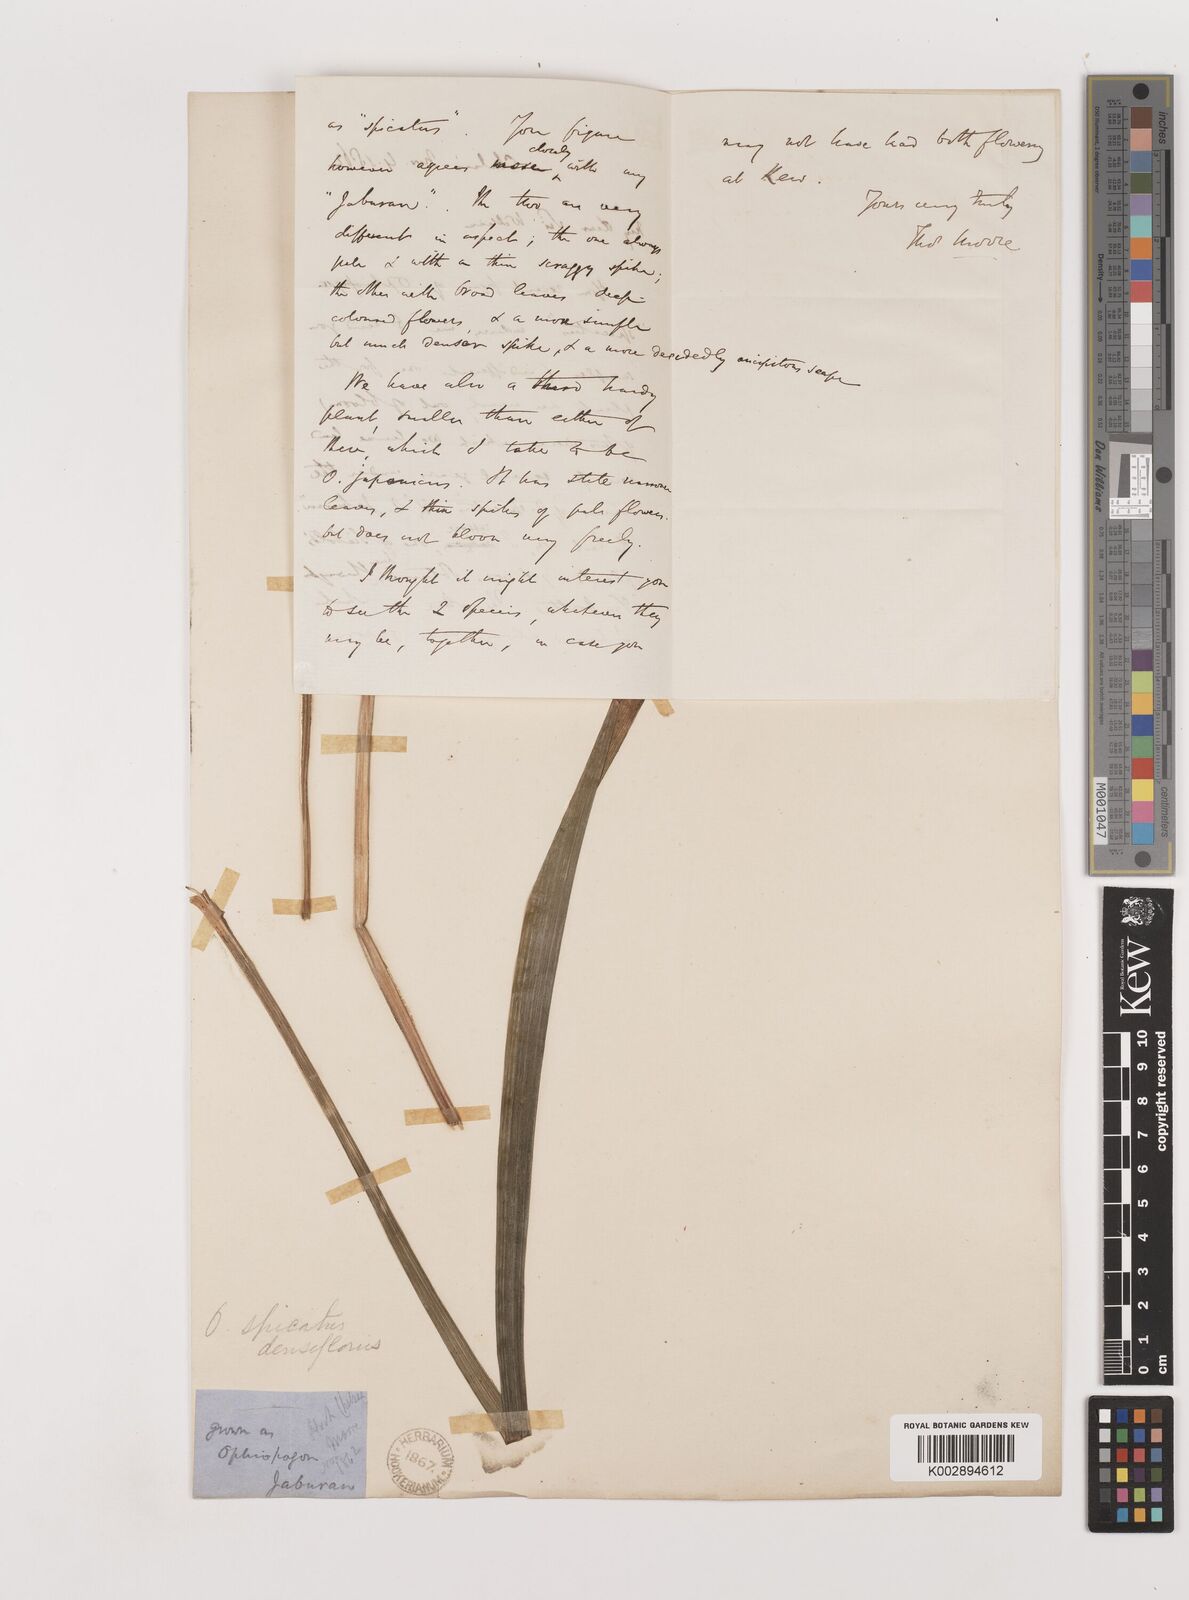 as "spicatus". Your figure
however agrees more closely with my
"Jaburan". The two are very
different in aspect; the one always
pale & with a thin scraggy spike;
the other with broad leaves deep-
coloured flowers, & a more simple
but much denser spike, & a more decidedly ancipitous scape
We have also a third hardy
plant, smaller than either of
these, which I take to be
O. japonicus. It has still narrower
leaves, & thin spikes of pale flowers.
but does not bloom very freely.
I thought it might interest you
to see the 2 species, whatever they
may be, together, in case you
may not have had both flowering
at Kew.
Yours very truly
Thos Moore
O. spicatus
densiflorus
grown as
Ophiopogon
Jaburan
Hort. Chelsea
Moore
HERBARIUM HOOKERIANUM
1867.
ROYAL BOTANIC GARDENS KEW
K002894612
inches
centimetres
Density
Don Williams
M001047
Kew
Royal Botanic Gardens
copyright reserved
0 1 2 3 4 5 6 7 8 9 10
cm